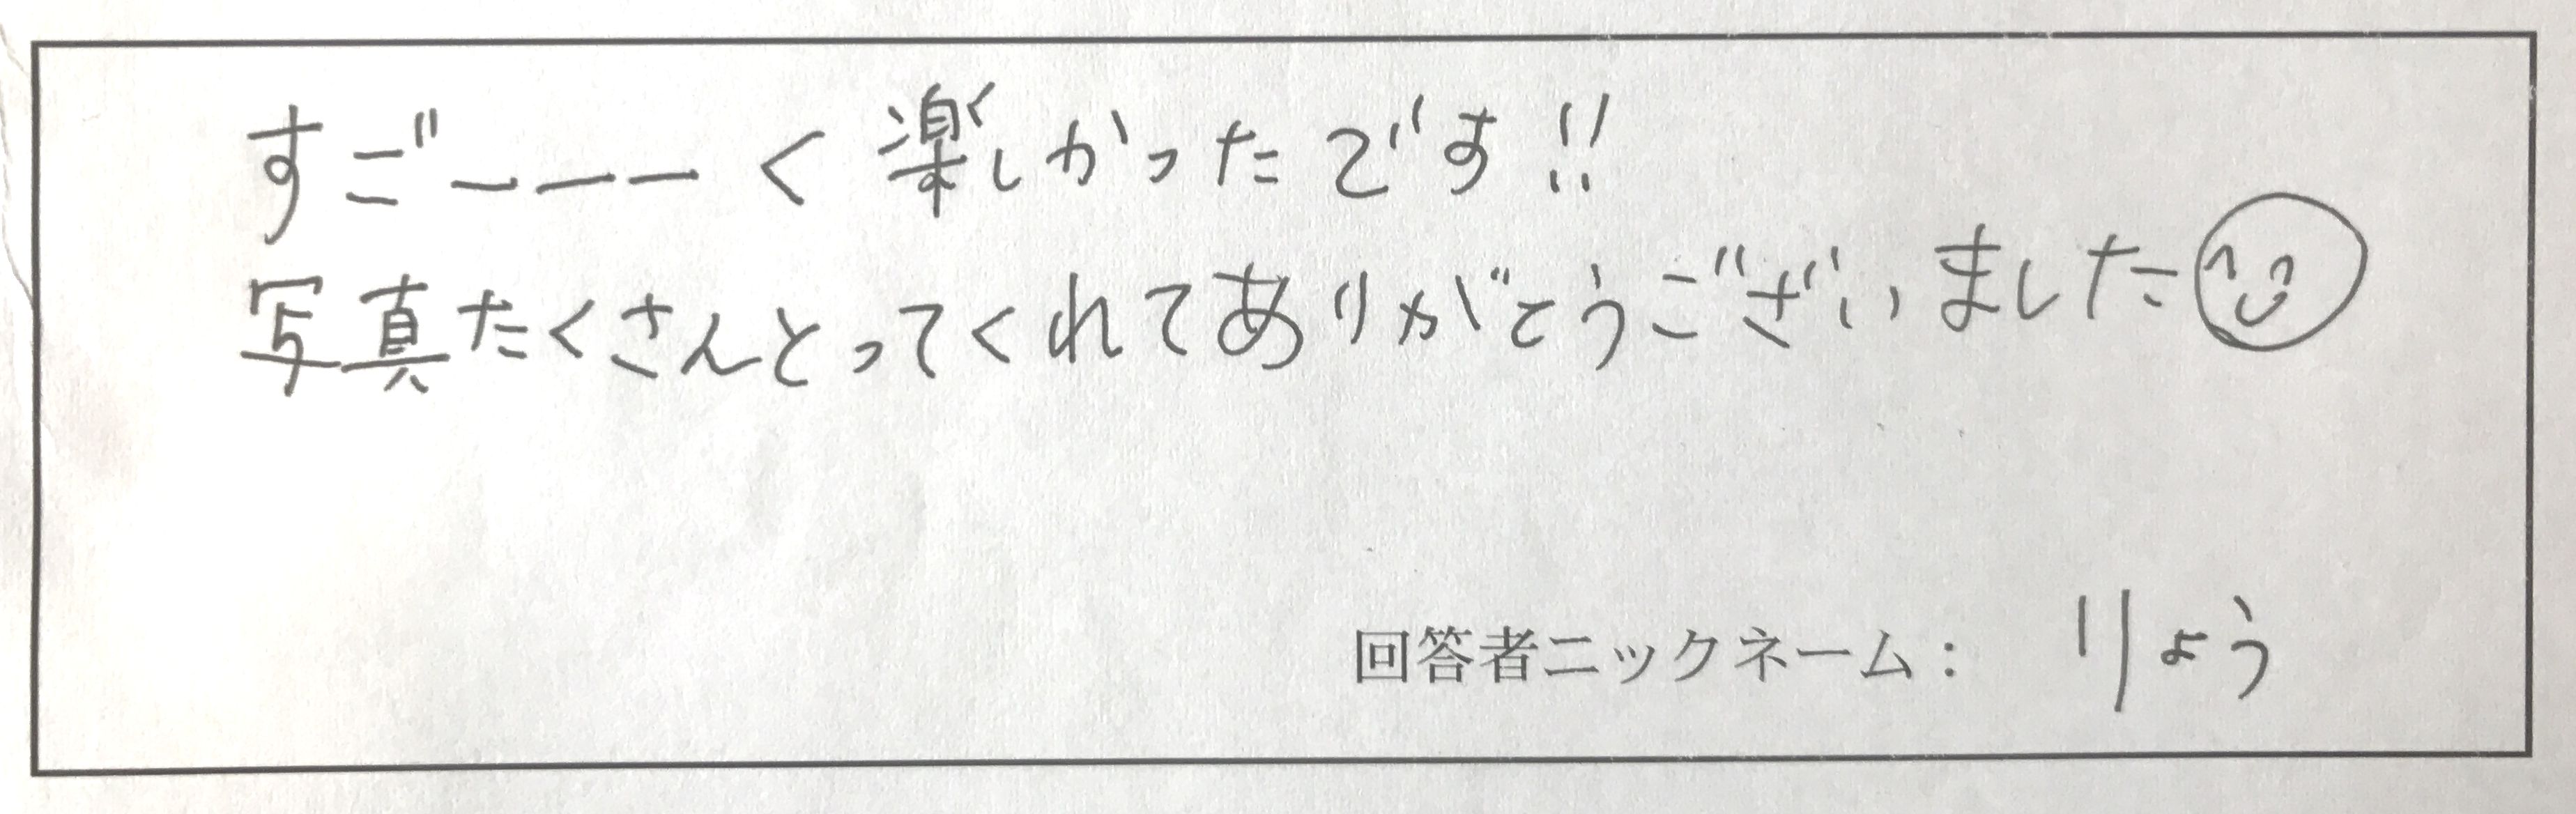 すごーーーく楽しかったです!!
写真たくさんとってくれてありがとうございました
回答者ニックネーム： りょう